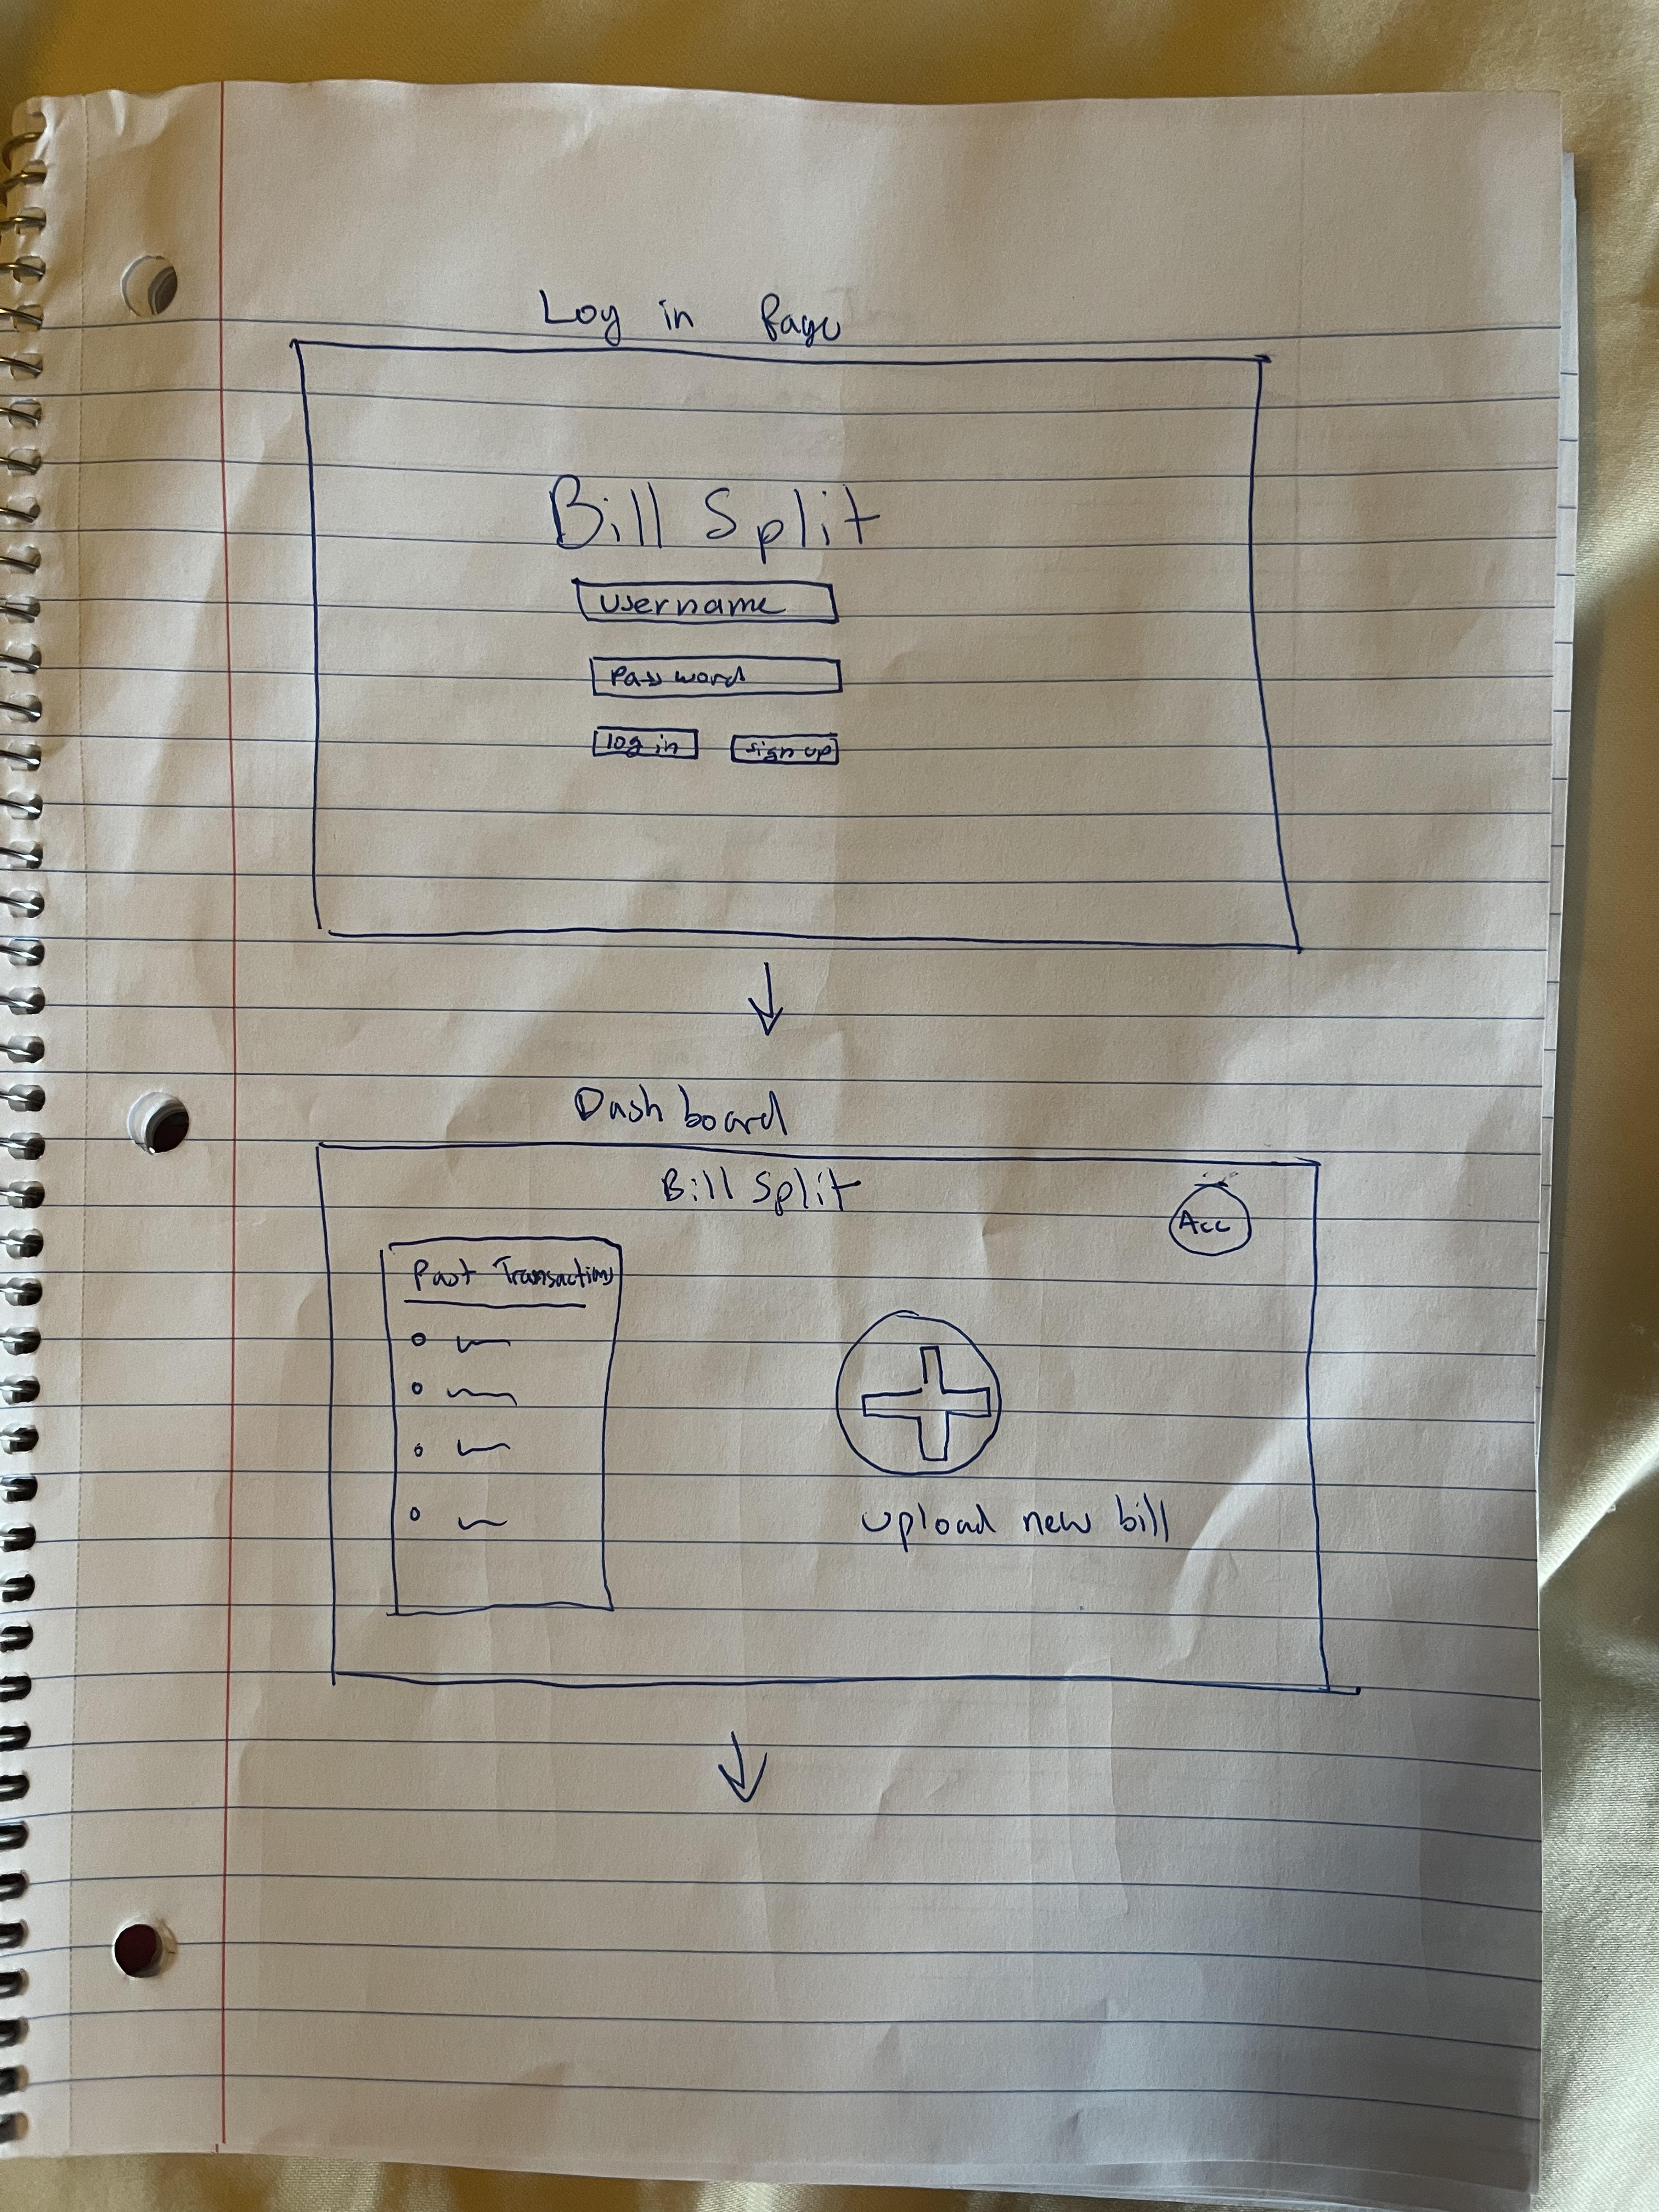 Log in Page
Bill Split
username
Password
log in
sign up
Dashboard
Bill Split
Acc
Past Transactions
upload new bill